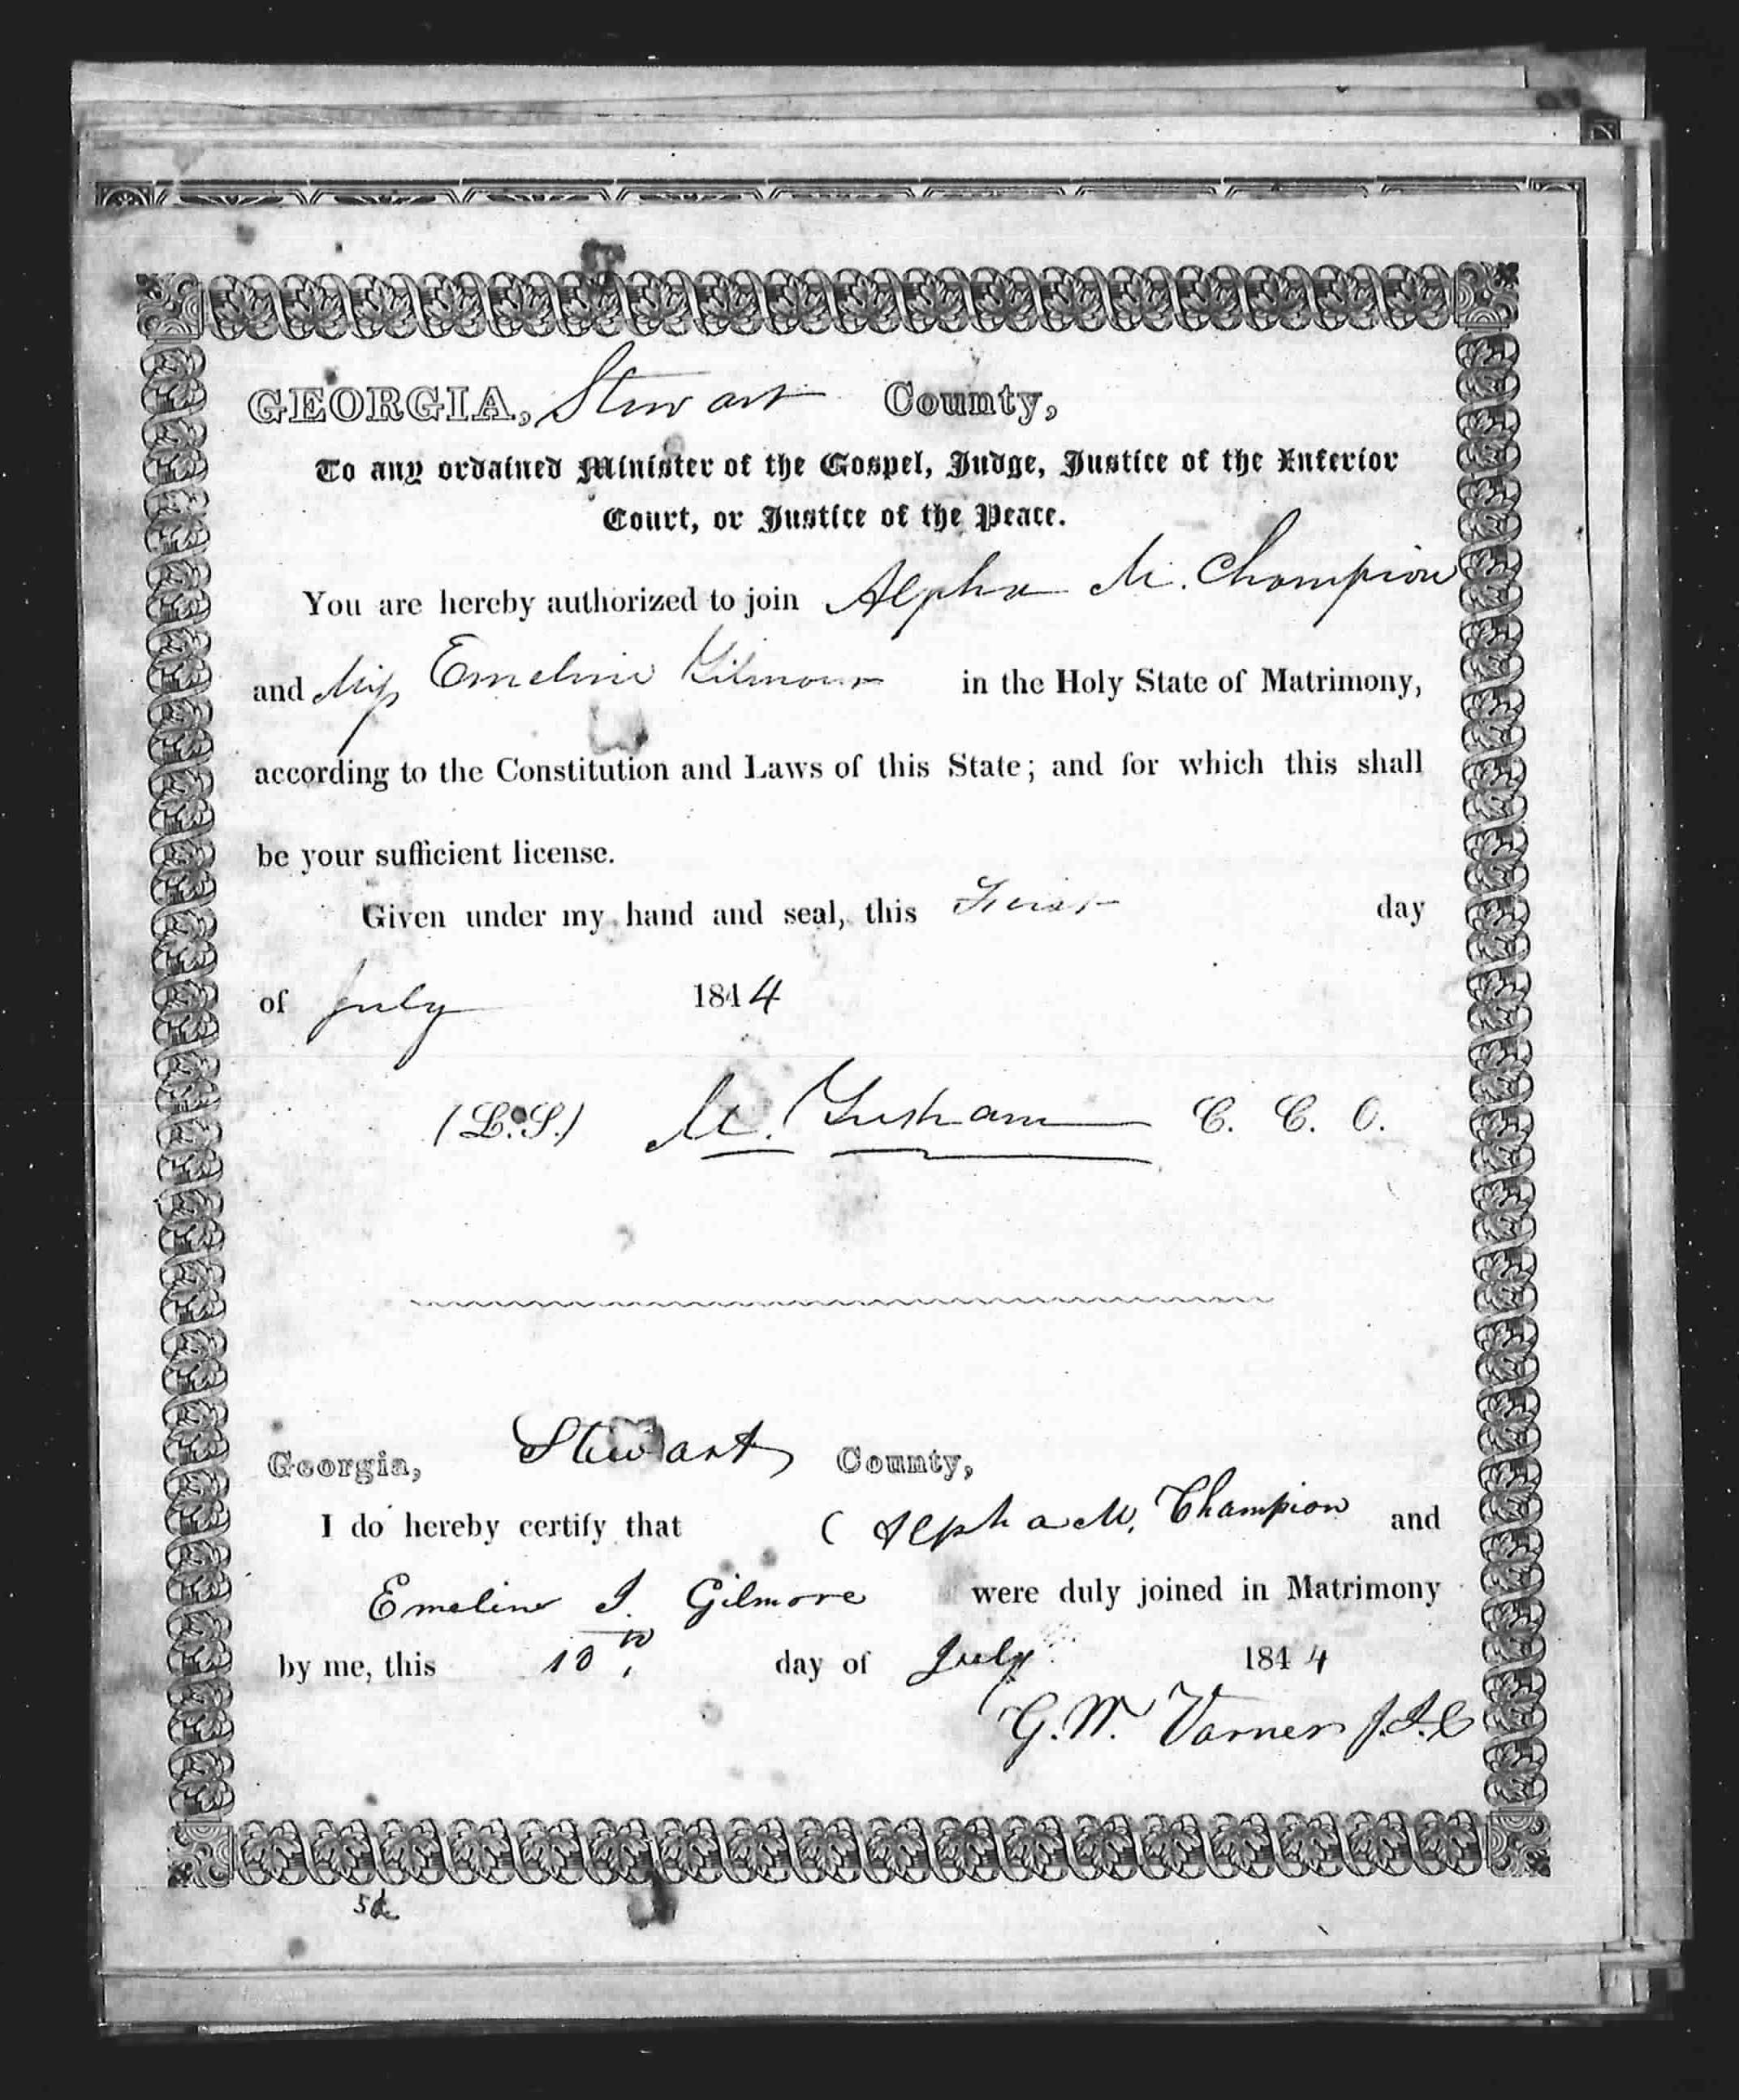 GEORGIA, Stewart County,
To any ordained Minister of the Gospel, Judge, Justice of the Inferior
Court, or Justice of the Peace.
You are hereby authorized to join Alpha M. Champion
and Miss Emeline Gilmour in the Holy State of Matrimony,
according to the Constitution and Laws of this State; and for which this shall
be your sufficient license.
Given under my hand and seal, this First day
of July 1844
(L.S.) M. Gresham C. C. O.
Georgia, Stewart County,
I do hereby certify that Alpha M. Champion and
Emeline I. Gilmore were duly joined in Matrimony
by me, this 10th day of July 1844
G. W. Varner J.I.C